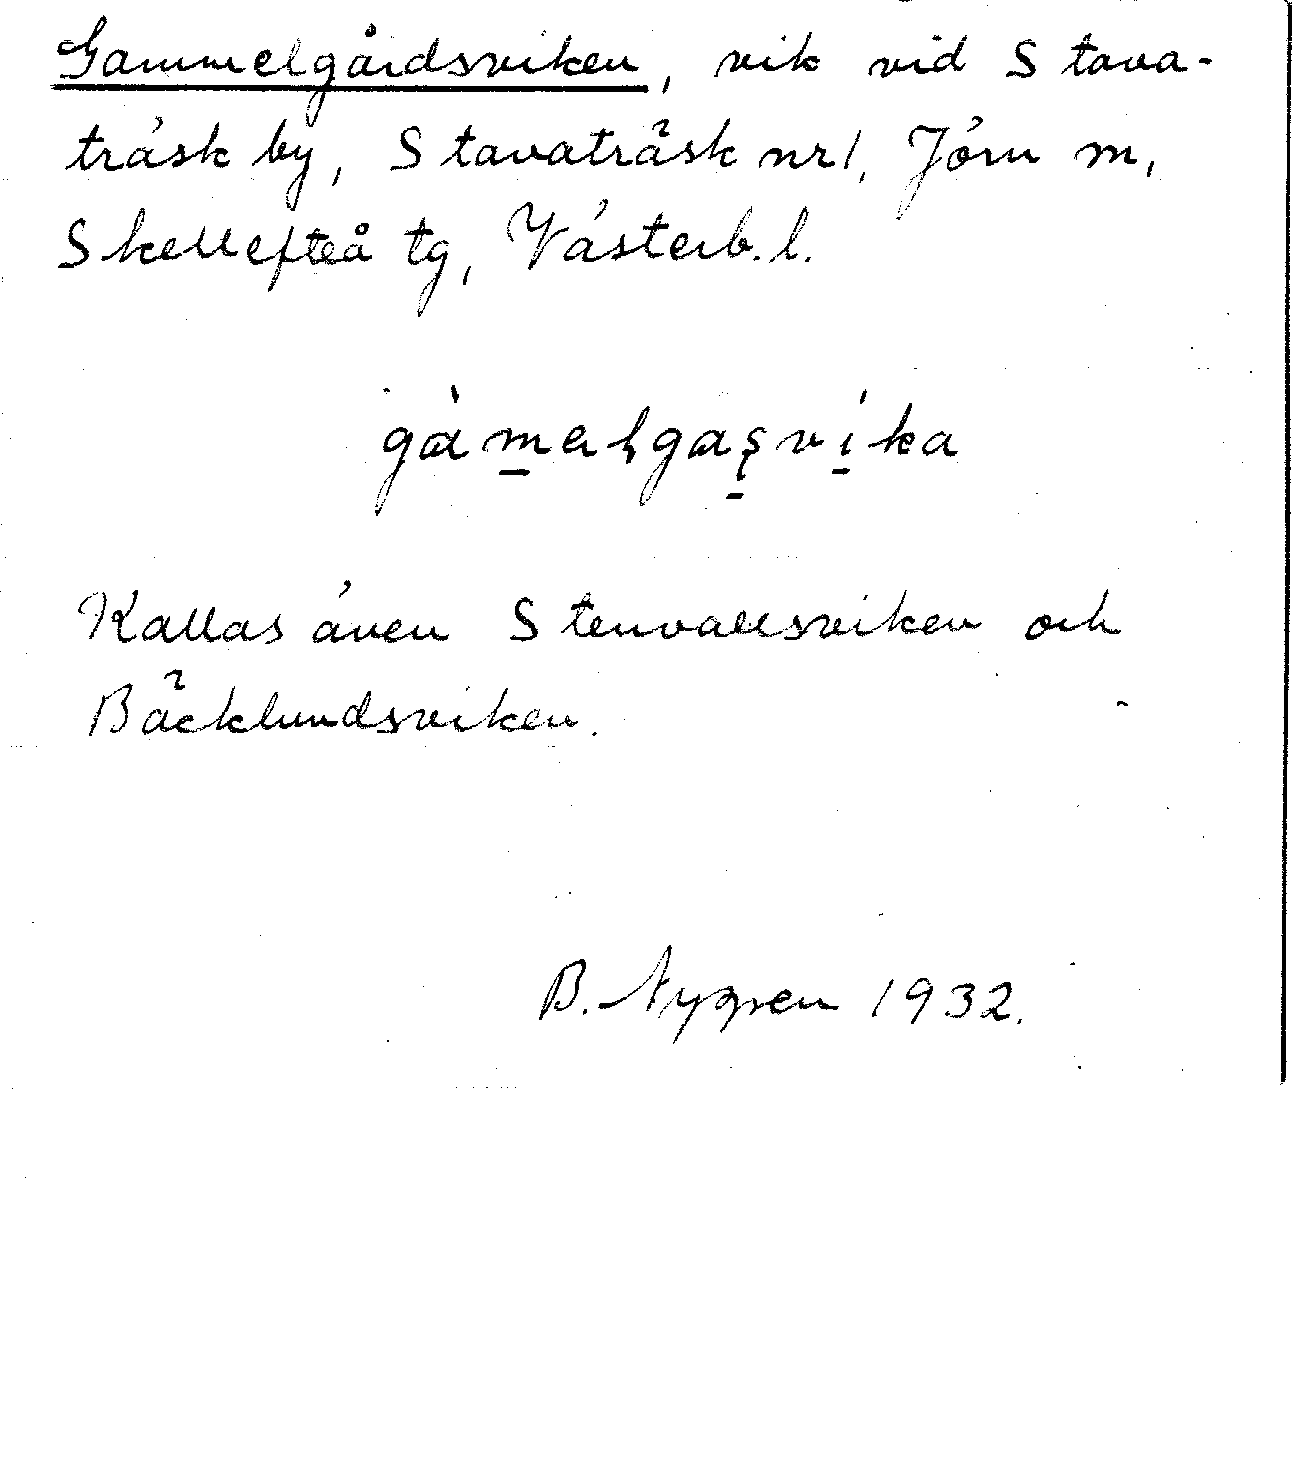 Gammelgårdsviken, vik vid Stava-
träsk by, Stavaträsk nr 1, Jörn m,
Skellefteå tg, Västerb. l.
gàmalgaṣvíka
Kallas även Stenvallsviken och
Bäcklundsviken.
B. Nygren 1932.